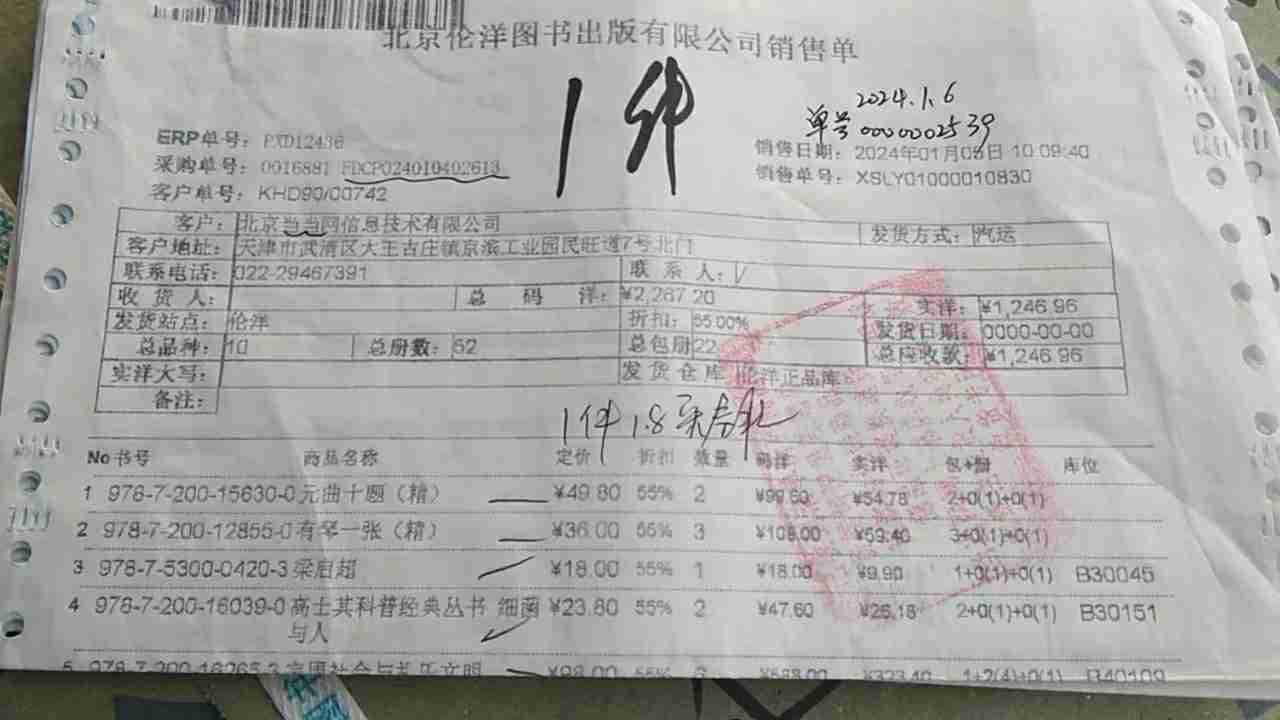 北京伦洋图书出版有限公司销售单
1件
2024.1.6
单号0000002539
ERP单号: PXD12436
采购单号: 0016881 FDCP024010402613
客户单号: KHD90/00742
销售日期: 2024年01月05日 10:09:40
销售单号: XSLY01000010830
客户: 北京当当网信息技术有限公司 发货方式: 汽运
客户地址: 天津市武清区大王古庄镇京滨工业园民旺道7号北门
联系电话: 022-29467391 联系人:
收货人: 总码洋: ¥2,267.20 实洋: ¥1,246.96
发货站点: 伦洋 折扣: 55.00% 发货日期: 0000-00-00
总品种: 10 总册数: 52 总包册 22 总应收款: ¥1,246.96
实洋大写: 发货仓库 伦洋正品库
备注:
1件 1.8
No 书号 商品名称 定价 折扣 数量 码洋 实洋 包+册 库位
1 978-7-200-15630-0 元曲十题（精） ¥49.80 55% 2 ¥99.60 ¥54.78 2+0(1)+0(1)
2 978-7-200-12855-0 有琴一张（精） ¥36.00 55% 3 ¥108.00 ¥59.40 3+0(1)+0(1)
3 978-7-5300-0420-3 梁启超 ¥18.00 55% 1 ¥18.00 ¥9.90 1+0(1)+0(1) B30045
4 978-7-200-16039-0 高士其科普经典丛书 细菌 ¥23.80 55% 2 ¥47.60 ¥26.18 2+0(1)+0(1) B30151
与人
5 978-7-200-16265-3 ¥98.00 55% ¥588.00 ¥323.40 1+2(4)+0(1) B40109